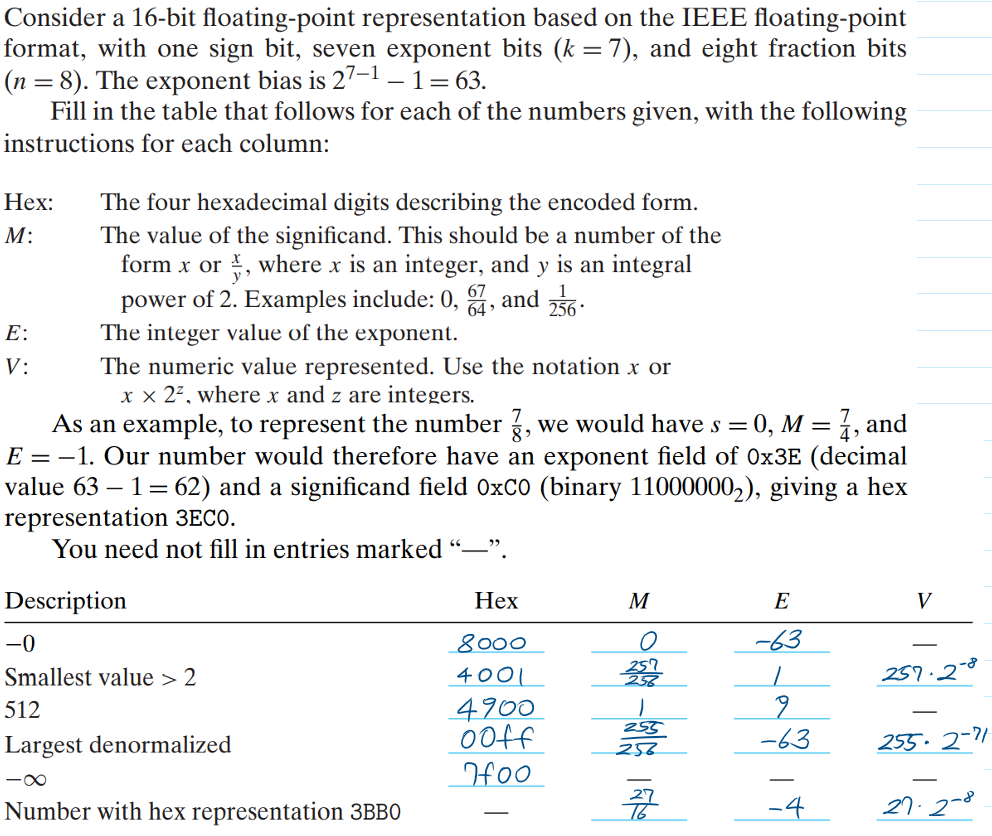 Consider a 16-bit floating-point representation based on the IEEE floating-point
format, with one sign bit, seven exponent bits (k = 7), and eight fraction bits
(n = 8). The exponent bias is 2^{7−1} − 1 = 63.
Fill in the table that follows for each of the numbers given, with the following
instructions for each column:
Hex: The four hexadecimal digits describing the encoded form.
M: The value of the significand. This should be a number of the
form x or x/y, where x is an integer, and y is an integral
power of 2. Examples include: 0, 67/64, and 1/256.
E: The integer value of the exponent.
V: The numeric value represented. Use the notation x or
x × 2^z, where x and z are integers.
As an example, to represent the number 7/8, we would have s = 0, M = 7/4, and
E = −1. Our number would therefore have an exponent field of 0x3E (decimal
value 63 − 1 = 62) and a significand field 0xC0 (binary 11000000₂), giving a hex
representation 3EC0.
You need not fill in entries marked “—”.
Description Hex M E V
−0 8000 0 −63 —
Smallest value > 2 4001 257/256 1 257·2^{−8}
512 4900 1 9 —
Largest denormalized 00ff 255/256 −63 255·2^{−71}
−∞ 7f00 — — —
Number with hex representation 3BB0 — 27/16 −4 27·2^{−8}